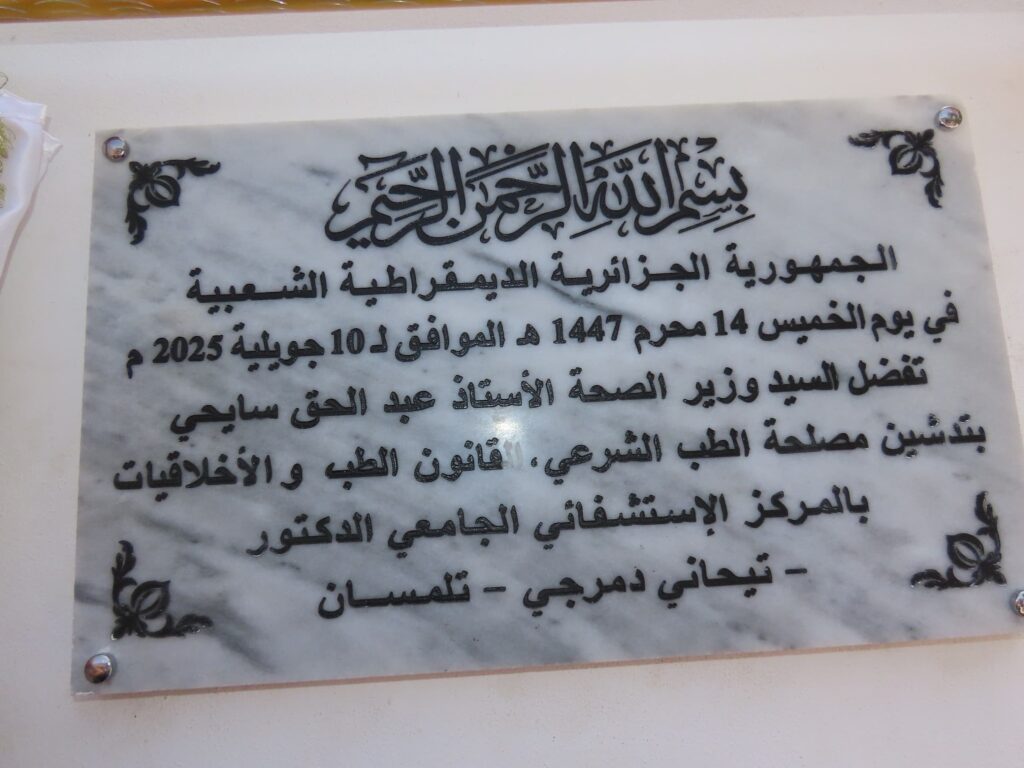 بسم الله الرحمن الرحيم
الجمهورية الجزائرية الديمقراطية الشعبية
في يوم الخميس 14 محرم 1447 هـ الموافق لـ 10 جويلية 2025 م
تفضل السيد وزير الصحة الأستاذ عبد الحق سايحي
بتدشين مصلحة الطب الشرعي، القانون الطب و الأخلاقيات
بالمركز الإستشفائي الجامعي الدكتور
- تيجاني دمرجي - تلمسان